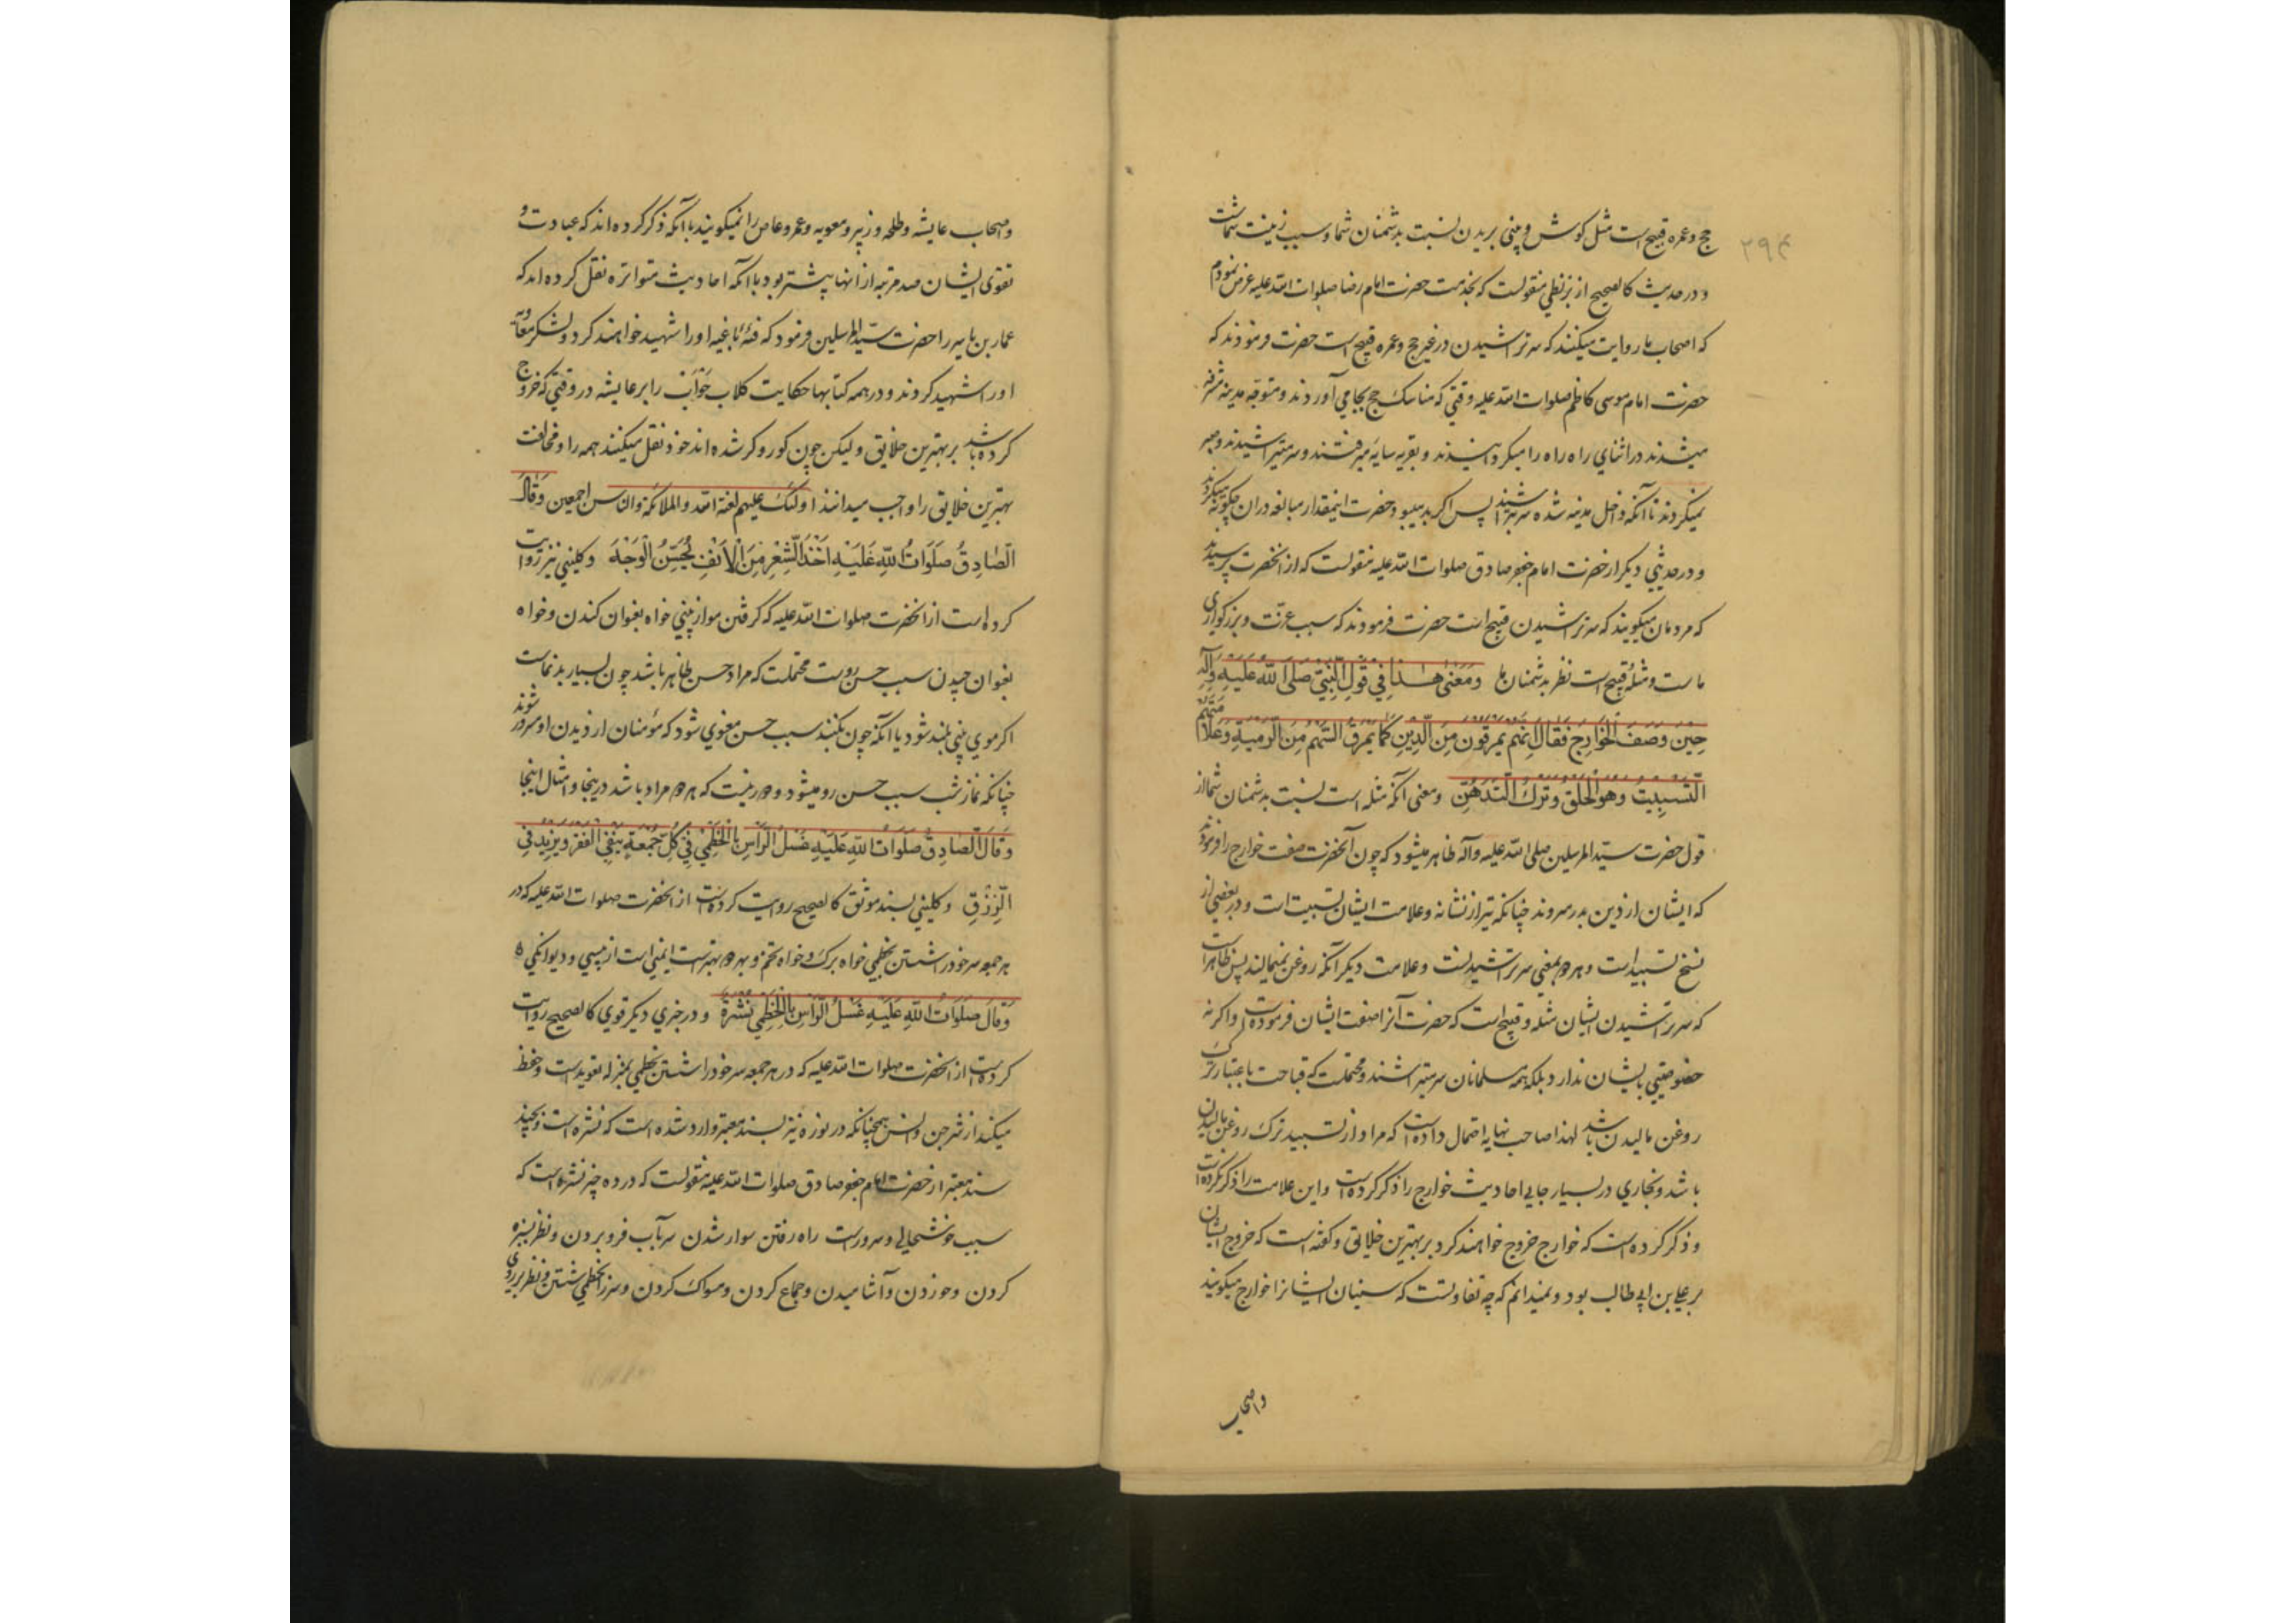 ۲۹۴
حج وعمره قبیح است مثل کوش و بینی بریدن نسبت بدشمنان شما و سبب زینت شماست
و در حدیث کالصحیح از بزنطی منقولست که بخدمت حضرت امام رضا صلوات الله علیه عرض نمودم
که اصحاب ما روایت میکنند که سر تراشیدن در غیر حج وعمره قبیح است حضرت فرمودند که
حضرت امام موسی کاظم صلوات الله علیه وقتی که مناسک حج بجا می آوردند و متوجه مدینه مشرفه
میشدند در اثنای راه راه را میکردانیدند و بقریه سایه میرفتند و سر میتراشیدند و صبر
نمیکردند تا آنکه داخل مدینه شده سر بتراشند پس اکر بد میبود حضرت اینمقدار مبالغه در ان چکونه میکردند
و در حدیثی دیکر از حضرت امام جعفر صادق صلوات الله علیه منقولست که از انحضرت پرسیدند
که مردمان میکویند که سر تراشیدن قبیح است حضرت فرمودند که سبب عزت و بزرکواری
ماست و مثلهٔ قبیح است نظر بدشمنان ما وَمَعْنیٰ هٰذا فِی قَولِ النَّبِیِّ صَلَّی اللهُ عَلَیْهِ وَآلِهِ
حِینَ وَصَفَ الخَوَارِجَ فَقَالَ اِنَّهُم یَمرُقُونَ مِنَ الدِّینِ کَمَا یَمرُقُ السَّهمُ مِنَ الرَّمِیَّةِ وَعَلَامَتُهُم
التَّسبِیتُ وَهُوَ الحَلقُ وَتَرکُ التَّدَهُّنِ ومعنی آنکه مثله است نسبت بدشمنان شما از
قول حضرت سید المرسلین صلی الله علیه وآله ظاهر میشود که چون آنحضرت صفت خوارج را فرمودند
که ایشان از دین بدر میروند چنانکه تیر از نشانه و علامت ایشان تسبیت است و در بعضی از
نسخ تسبید است و هر دو بمعنی سر تراشیدنست و علامت دیکر آنکه روغن نمیمالند پس ظاهر است
که سر تراشیدن ایشان مثله و قبیح است که حضرت آنرا صفت ایشان فرموده است و اکر نه
خصوصیتی بایشان ندارد بلکه همه مسلمانان سر میتراشند و محتملست که قباحت باعتبار ترک
روغن مالیدن باشد لهذا صاحب نهایه احتمال داده است که مراد از تسبید ترک روغن مالیدن
باشد و بخاری در بسیار جایی احادیث خوارج را ذکر کرده است و این علامت را ذکر کرده است
و ذکر کرده است که خوارج خروج خواهند کرد بر بهترین خلایق و کفته است که خروج ایشان
بر علی بن ابی طالب بود و نمیدانم که چه تفاوتست که سنیان ایشانرا خوارج میکویند
و اصحاب
و اصحاب عایشه و طلحه و زبیر و معویه و عمرو عاص را نمیکویند با آنکه ذکر کرده اند که عبادت و
تقوی ایشان صد مرتبه از انها بیشتر بود با آنکه احادیث متواتره نقل کرده اند که
عمار بن یاسر را حضرت سید المرسلین فرمود که فئهٔ باغیه او را شهید خواهند کرد و لشکر معاویه
او را شهید کردند و در همه کتابها حکایت کلاب حَوْأَب را بر عایشه در وقتی که خروج
کرده باشد بر بهترین خلایق ولیکن چون کور و کر شده اند خود نقل میکنند همه را و مخالفت
بهترین خلایق را واجب میدانند اولئک علیهم لعنة الله والملائکة والناس اجمعین وَقَالَ
الصَّادِقُ صَلَوَاتُ اللهِ عَلَیْهِ اَخْذُ الشَّعْرِ مِنَ الْاَنْفِ یُحَسِّنُ الْوَجْهَ و کلینی نیز روایت
کرده است از انحضرت صلوات الله علیه که کرفتن مو از بینی خواه بعنوان کندن و خواه
بعنوان چیدن سبب حسن روست محتملست که مراد حسن ظاهر باشد چون بسیار بدنماست
اکر موی بینی بلند شود یا آنکه چون بکنند سبب حسن معنوی شود که مؤمنان از دیدن او مسرور شوند
چنانکه نماز شب سبب حسن رو میشود و دور نیست که هر دو مراد باشد در ینجا و امثال اینجا
وَقَالَ الصَّادِقُ صَلَوَاتُ اللهِ عَلَیْهِ غَسْلُ الرَّأسِ بِالْخِطْمِیِّ فِی کُلِّ جُمْعَةٍ یَنْفِی الْفَقْرَ وَیَزِیدُ فِی
الرِّزْقِ و کلینی بسند موثق کالصحیح روایت کرده است از انحضرت صلوات الله علیه که در
هر جمعه سر خود را شستن بخطمی خواه برک و خواه تخم و بهر دو بهتر است ایمنی است از پیسی و دیوانکی
وَقَالَ صَلَوَاتُ اللهِ عَلَیْهِ غَسْلُ الرَّأسِ بِالْخِطْمِیِّ نُشْرَةٌ و در خبری دیکر قوی کالصحیح روایت
کرده است از انحضرت صلوات الله علیه که در هر جمعه سر خود را شستن بخطمی بمنزله تعویذ است و حفظ
میکند از شر جن وانس همچنانکه در نوره نیز بسند معتبر وارد شده است که نشره است و بچند
سند معتبر از حضرت امام جعفر صادق صلوات الله علیه منقولست که در ده چیز نشره است که
سبب خوشحالی و سرور است راه رفتن سوار شدن سر بآب فرو بردن و نظر بسبزه
کردن و خوردن و آشامیدن و جماع کردن و مسواک کردن و سر را بخطمی شستن و نظر بر روی